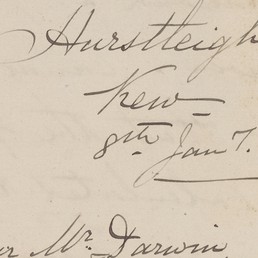 Hurstleigh
Kew
8th Jan 7.
Mr. Darwin